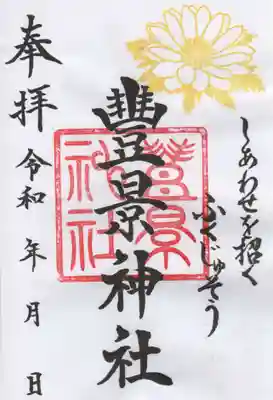 しあわせを招く
ふくじゅそう
豊景神社
豊景神社
奉拝 令和 年 月 日